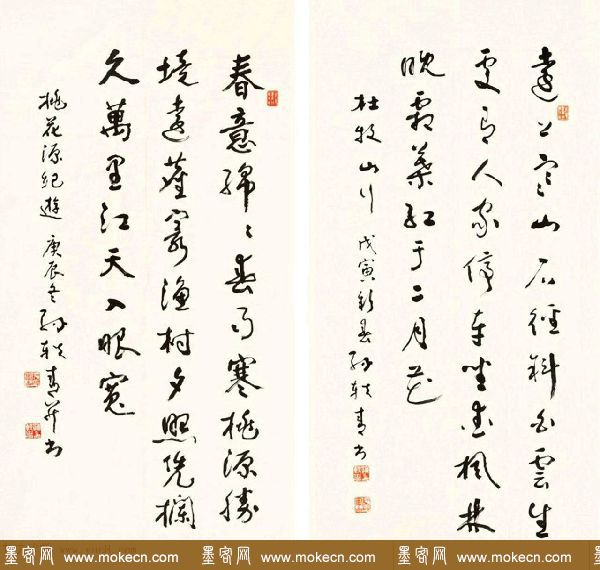 遠上寒山石徑斜白雲生
處有人家停车坐愛楓林
晚霜葉紅于二月花
杜牧山行 戊寅新春 孙轶青书
春意綿〻春雨寒桃源勝
境遠塵寰漁村夕照凭欄
久萬里江天入眼寬
桃花源纪遊 庚辰冬 孙轶青并书
墨客网 www.mokecn.com 墨客网 www.mokecn.com 墨客网 www.mokecn.com